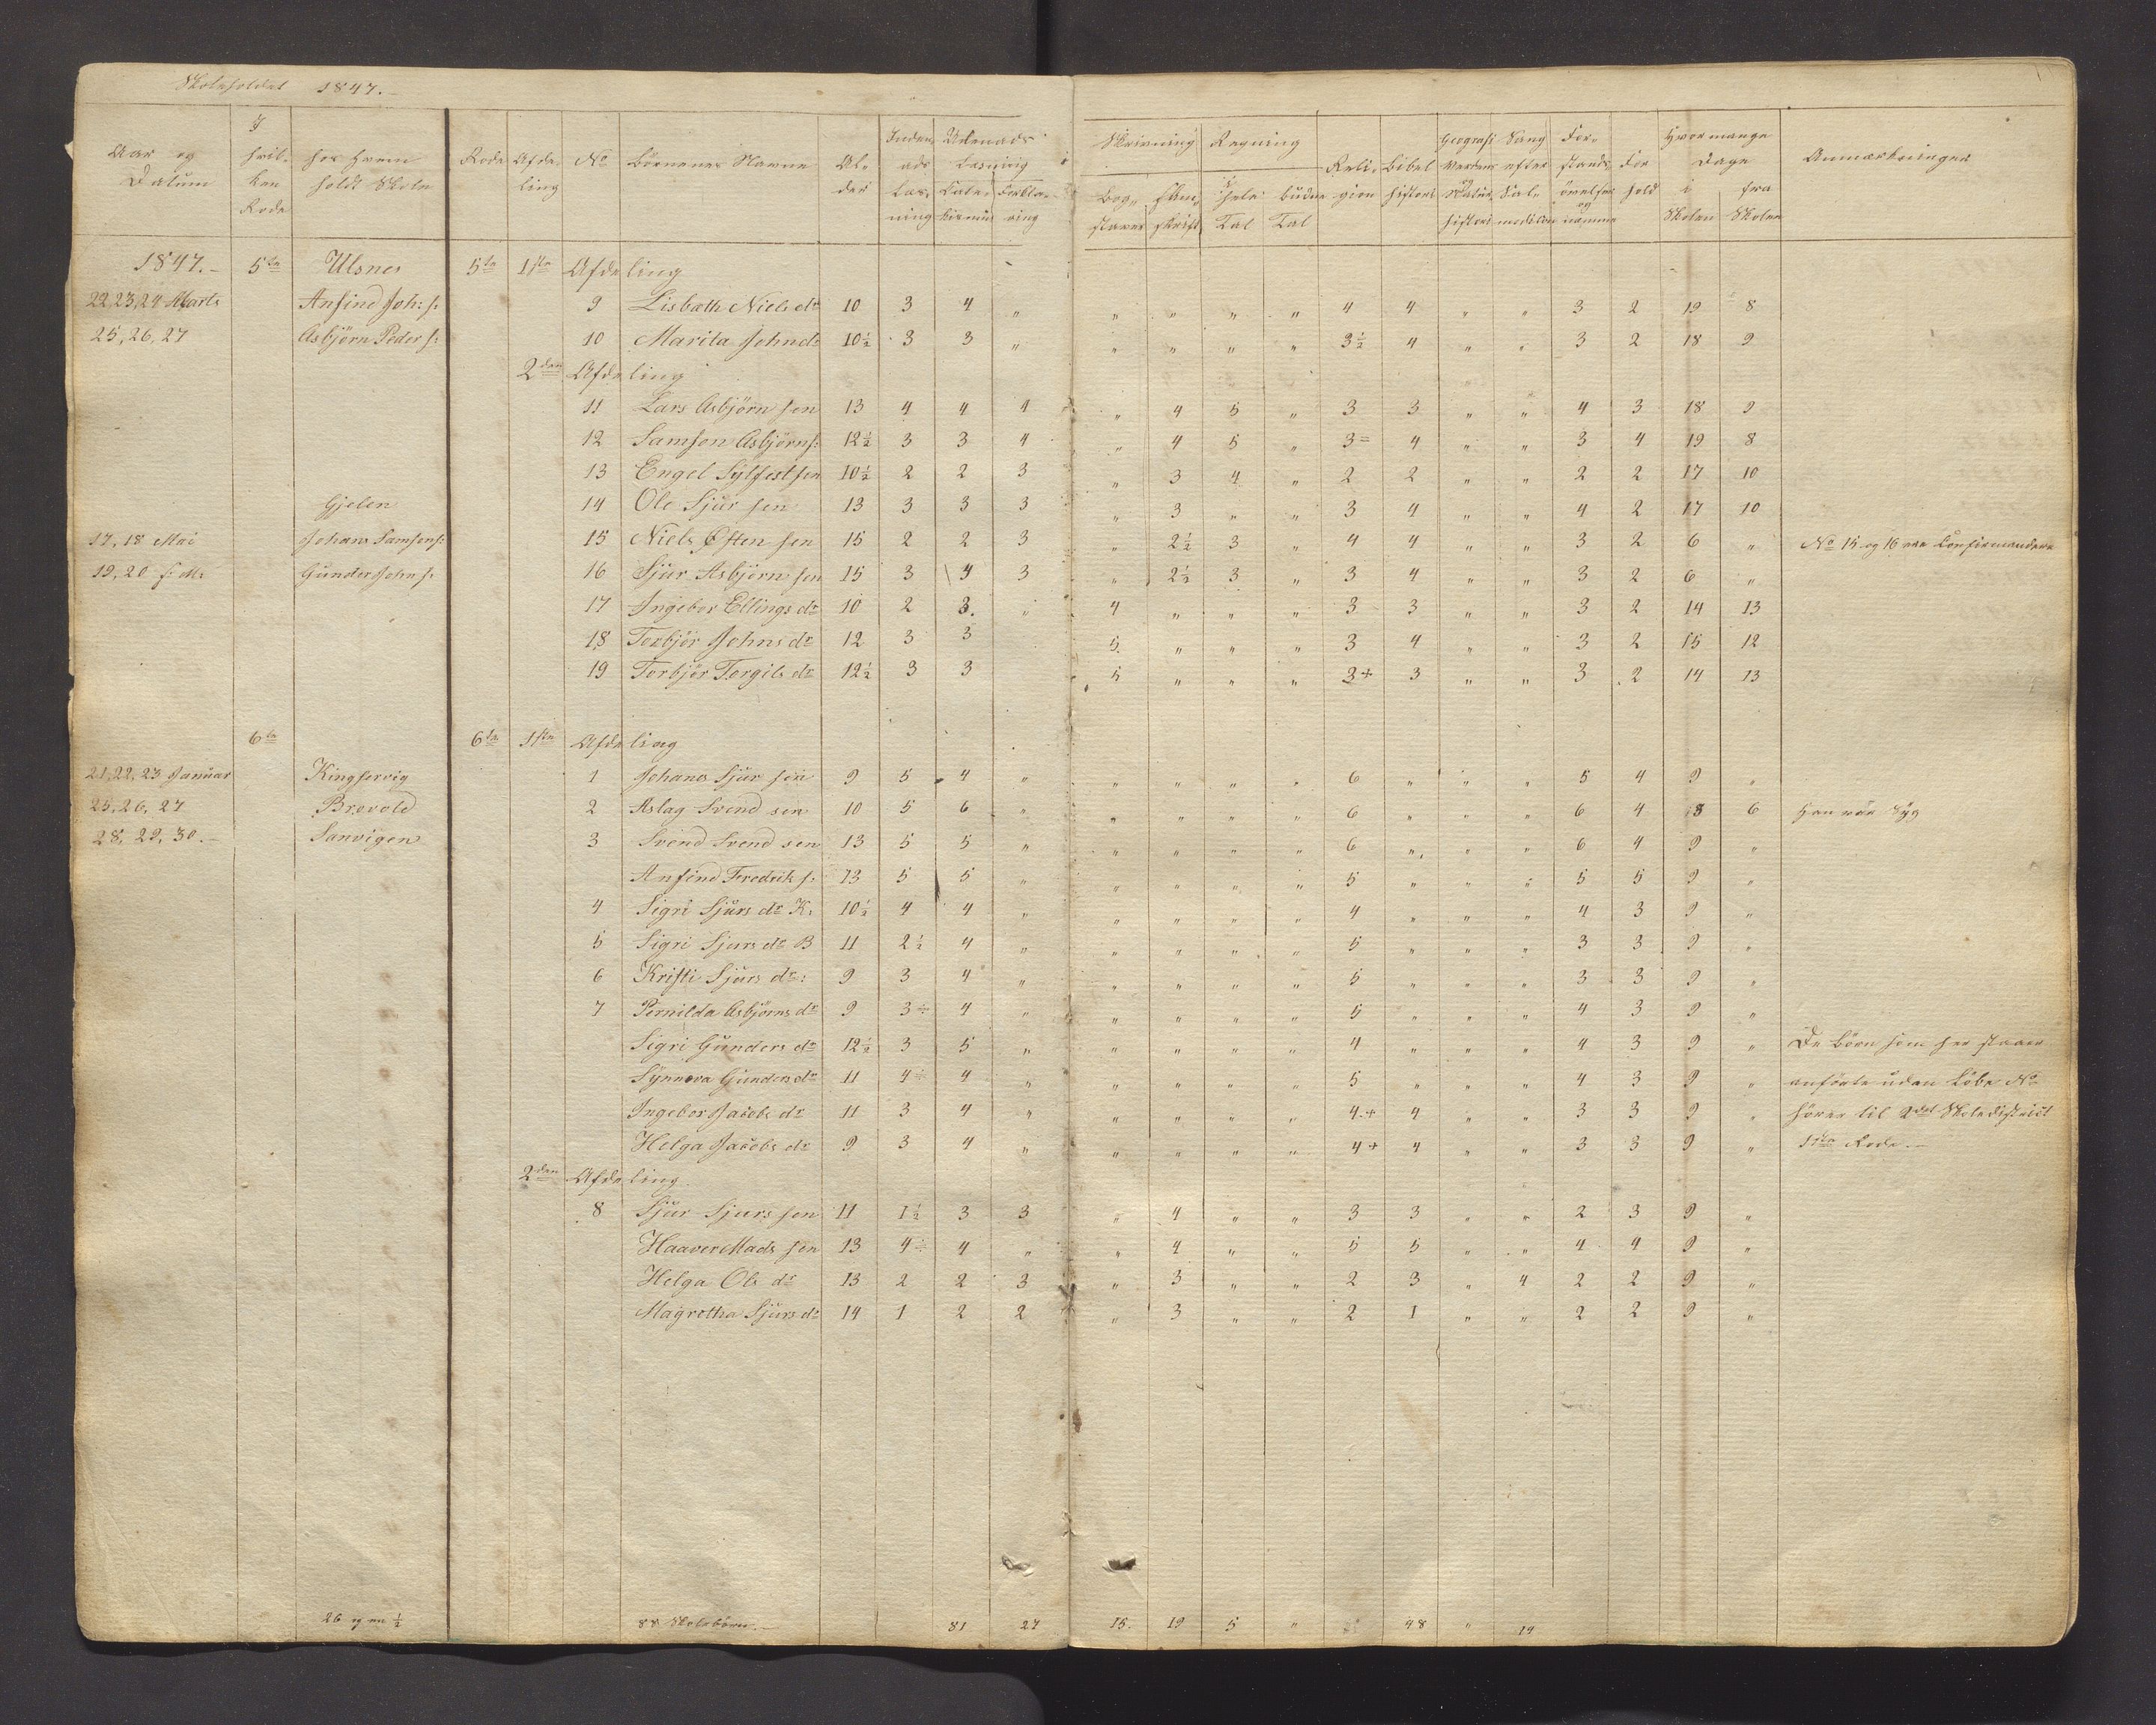 Skoleholdet 1847.-
Aar og Datum | I hvilken Rode | hos hvem holdt Skole | Rode | Afdeling | No | Börnenes Navne | Alder | Indenads Læsning | Udenads Læsning Catekismus | Forklaring | Skrivning Bogstaver | Skrift | Regning i hele Tal | brudne Tal | Religion | Bibelhistorie | Geografi Verdens og Naturhistorie | Sang efter Salmodikon | Forstandsövelser og nemme | Forhold | Hvor mange Dage i Skolen | fra Skolen | Anmærkninger
1847.- 5te Ulsnes 5te 1ste Afdeling
22,23,24 Marts Anfind Joh: s: 9 Lisbeth Niels dr 10 3 4 " " " " " 4 4 " " 3 2 19 8
25, 26, 27 Asbjörn Peder s: 10 Marita John dr 10½ 3 3 " " " " " 3½ 4 " " 3 2 18 9
2den Afdeling
11 Lars Asbjörn sen 13 4 4 4 " 4 5 " 3 3 " " 4 3 18 9
12 Samson Asbjörn s: 12½ 3 3 4 " 4 5 " 3= 4 " " 3 4 19 8
13 Engel Sylfest sen 10½ 2 2 3 " 3 4 " 2 2 " " 2 2 17 10
Gjelen 14 Ole Sjur sen 13 3 3 3 " 3 " " 3 4 " " 4 2 17 10
17, 18 Mai Johans Samsons: 15 Niels Østen sen 15 2 2 3 " 2½ 3 " 4 4 " " 3 2 6 " No 15 og 16 var Confirmandere
19, 20 s: M: Gunder John s: 16 Sjur Asbjörn sen 15 3 4 3 " 2½ 3 " 3 4 " " 3 2 6 "
17 Ingebor Ellings dr 10 2 3. " 4 " " " 3 3 " " 3 2 14 13
18 Torbjör Johns dr 12 3 3 5. " " " 3 4 " " 3 2 15 12
19 Torbjör Torgils dr 12½ 3 3 5 " " " 3+ 3 " " 3 2 14 13
6te 6te 1ste Afdeling
21,22,23 Januar Kingservig 1 Johanes Sjur sen 9 5 4 " " " " " 6 " " " 5 4 9 "
25, 26, 27 Brevold 2 Aslag Svend sen 10 5 6 " " " " " 6 " " " 6 4 8 6 Han var Syg
28, 29, 30.- Sanvigen 3 Svend Svend sen 13 5 5 " " " " " 6 " " " 6 4 9 "
Anfind Fredrik s: 13 5 5 " " " " " 5 " " " 5 5 9 "
4 Sigri Sjurs dr K: 10½ 4 4 " " " " " 4 " " " 4 3 9 "
5 Sigri Sjurs dr B 11 2½ 4 " " " " 5 " " " 3 3 9 "
6 Kristi Sjurs dr: 9 3 4 " " " " " 5 " " " 3 3 9 "
7 Pernilda Asbjörns dr 9 3÷ 4 " " " " " 5 " " " 4 3 9 "
Sigri Gunders dr 12½ 3 5 " " " " " 4 " " " 4 3 9 " De Börn som her staaer
Synnova Gunders dr 11 4÷ 4 " " " " " 5 " " " 4 3 9 " anförte uden Löbe No
Ingebor Jacobs dr 11 3 4 " " " " " 4+ 4 " " 3 3 9 " hörer til 2det Skoledistrict
Helga Jacobs dr 9 3 4 " " " " " 4+ 4 " " 3 3 9 " 11te Rode.-
2den Afdeling.
8 Sjur Sjurs sen 11 1½ 3 3 " 4 " " 3 3 " " 2 3 9 "
Haaver Mads sen 13 4÷ 4 " " 4 " " 5 5 " " 4 4 9 "
Helga Ols dr 13 2 2 3 " 3 " " 2 3 " 4 2 2 9 "
Magretha Sjurs dr 14 1 2 2 " 3 " " 2 1 " " 2 2 9 "
26 og en ½ 88 Skolebörn.- 81 27 15. 19 5 " 48 " 14